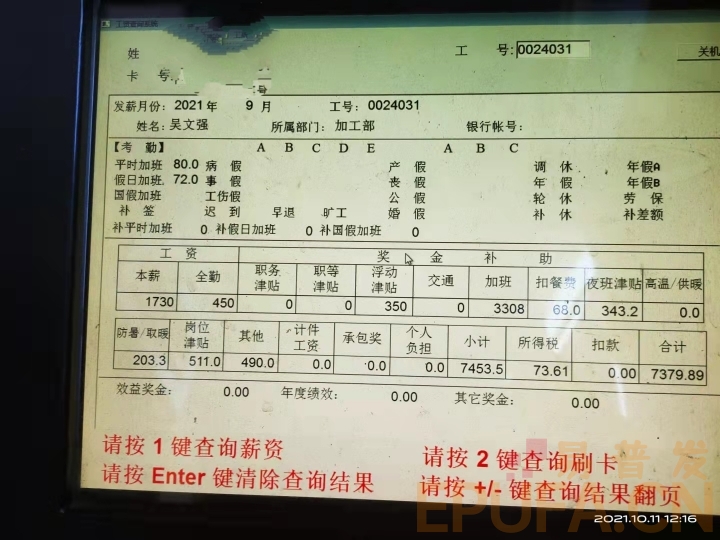 工资查询系统
姓
工 号: 0024031
关机
卡 号
发薪月份: 2021 年 9 月 工号: 0024031
姓名: 吴文强 所属部门: 加工部 银行帐号:
【考 勤】 A B C D E A B C
平时加班 80.0 病 假 产 假 调 休 年假A
假日加班 72.0 事 假 丧 假 年 假 年假B
国假加班 工伤假 公 假 轮 休 劳 保
补 签 迟 到 早退 旷工 婚 假 补 休 补差额
补平时加班 0 补假日加班 0 补国假加班 0
工 资 奖 金 补 助
本薪 全勤 职务津贴 职等津贴 浮动津贴 交通 加班 扣餐费 夜班津贴 高温/供暖
1730 450 0 0 350 0 3308 68.0 343.2 0.0
防暑/取暖 岗位津贴 其他 计件工资 承包奖 个人负担 小计 所得税 扣款 合计
203.3 511.0 490.0 0.0 0.0 0.0 7453.5 73.61 0.00 7379.89
效益奖金: 0.00 年度绩效: 0.00 其它奖金: 0.00
请按 1 键查询薪资 请按 2 键查询刷卡
请按 Enter 键清除查询结果 请按 +/- 键查询结果翻页
易普发
EPUFA.CN
2021.10.11 12:16